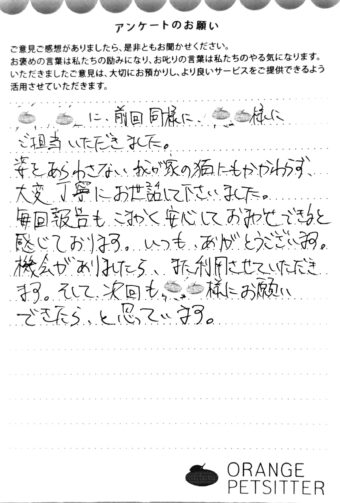 アンケートのお願い
ご意見ご感想がありましたら、是非ともお聞かせください。
お褒めの言葉は私たちの励みになり、お叱りの言葉は私たちのやる気になります。
いただきましたご意見は、大切にお預かりし、より良いサービスをご提供できるよう
活用させていただきます。
に、前回同様に、様に
ご担当いただきました。
姿をあらわさない我が家の猫にもかかわらず、
大変丁寧にお世話して下さいました。
毎回報告も、こまかく安心しておまかせできると
感じております。いつも、ありがとうございます。
機会がありましたら、また利用させていただき
ます。そして、次回も、様にお願い
できたら、と思っています。
ORANGE
PETSITTER